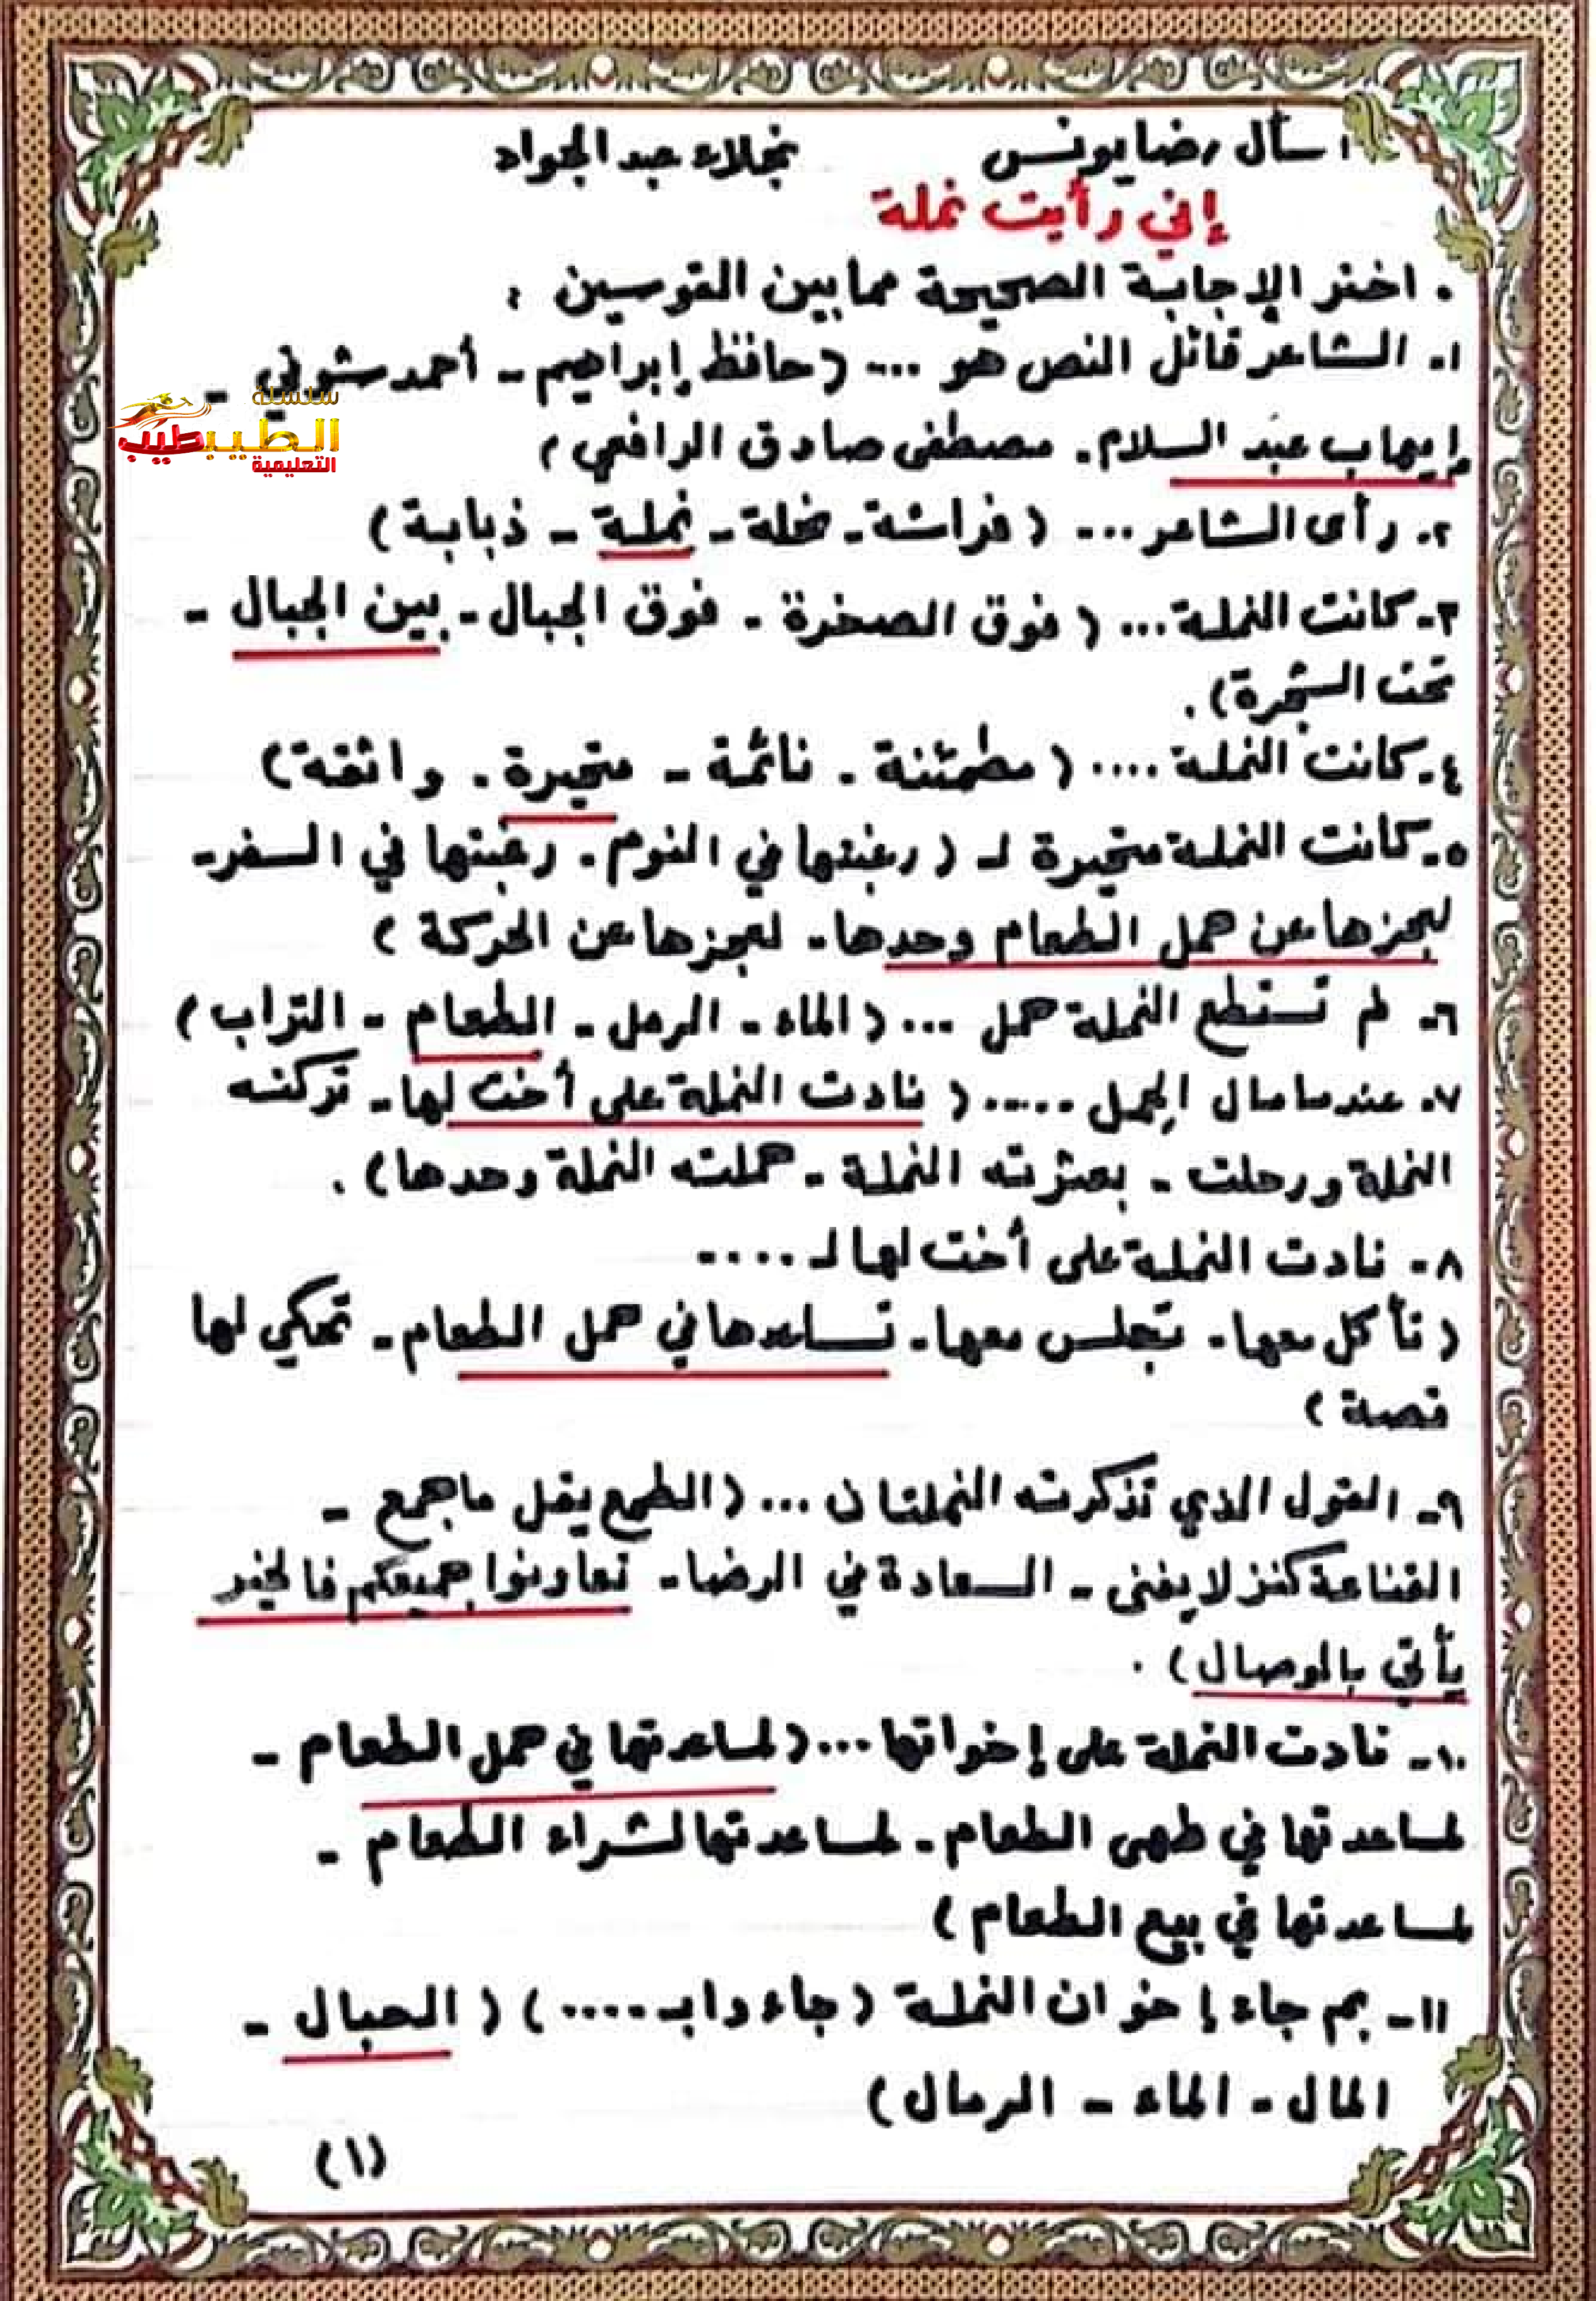 أ. سأل رضا يونس نجلاء عبد الجواد
إني رأيت نملة
. اختر الإجابة الصحيحة مما بين القوسين :
١. الشاعر قائل النص هو .... (حافظ إبراهيم - أحمد شوقي -
سلسلة
الطيبطيب
التعليمية
إيهاب عبد السلام. مصطفى صادق الرافعي)
٢. رأى الشاعر .... (فراشة - نحلة - نملة - ذبابة)
٣- كانت النملة ... (فوق الصخرة - فوق الجبال - بين الجبال -
تحت الشجرة) .
٤- كانت النملة .... (مطمئنة - نائمة - متحيرة . واثقة)
٥- كانت النملة متحيرة لـ (رغبتها في النوم . رغبتها في السفر-
لعجزها عن حمل الطعام وحدها- لعجزها عن الحركة)
٦- لم تستطع النملة حمل ... (الماء - الرمل - الطعام - التراب)
٧. عندما مال الحمل ..... (نادت النملة على أخت لها - تركته
النملة ورحلت - بعثرته النملة - حملته النملة وحدها) .
٨- نادت النملة على أخت لها لـ ....
(تأكل معها - تجلس معها - تساعدها في حمل الطعام - تحكي لها
قصة)
٩- القول الذي تذكرته النملتان ... (الطمع يقل ما جمع -
القناعة كنز لا يفنى - السعادة في الرضا - تعاونوا جميعكم فالخير
يأتي بالوصال) .
١٠- نادت النملة على إخواتها ... (لمساعدتها في حمل الطعام -
لمساعدتها في طهى الطعام - لمساعدتها لشراء الطعام -
لمساعدتها في بيع الطعام)
١١- بم جاء إخوان النملة (جاءوا بـ ....) (الحبال -
المال - الماء - الرمال)
(١)